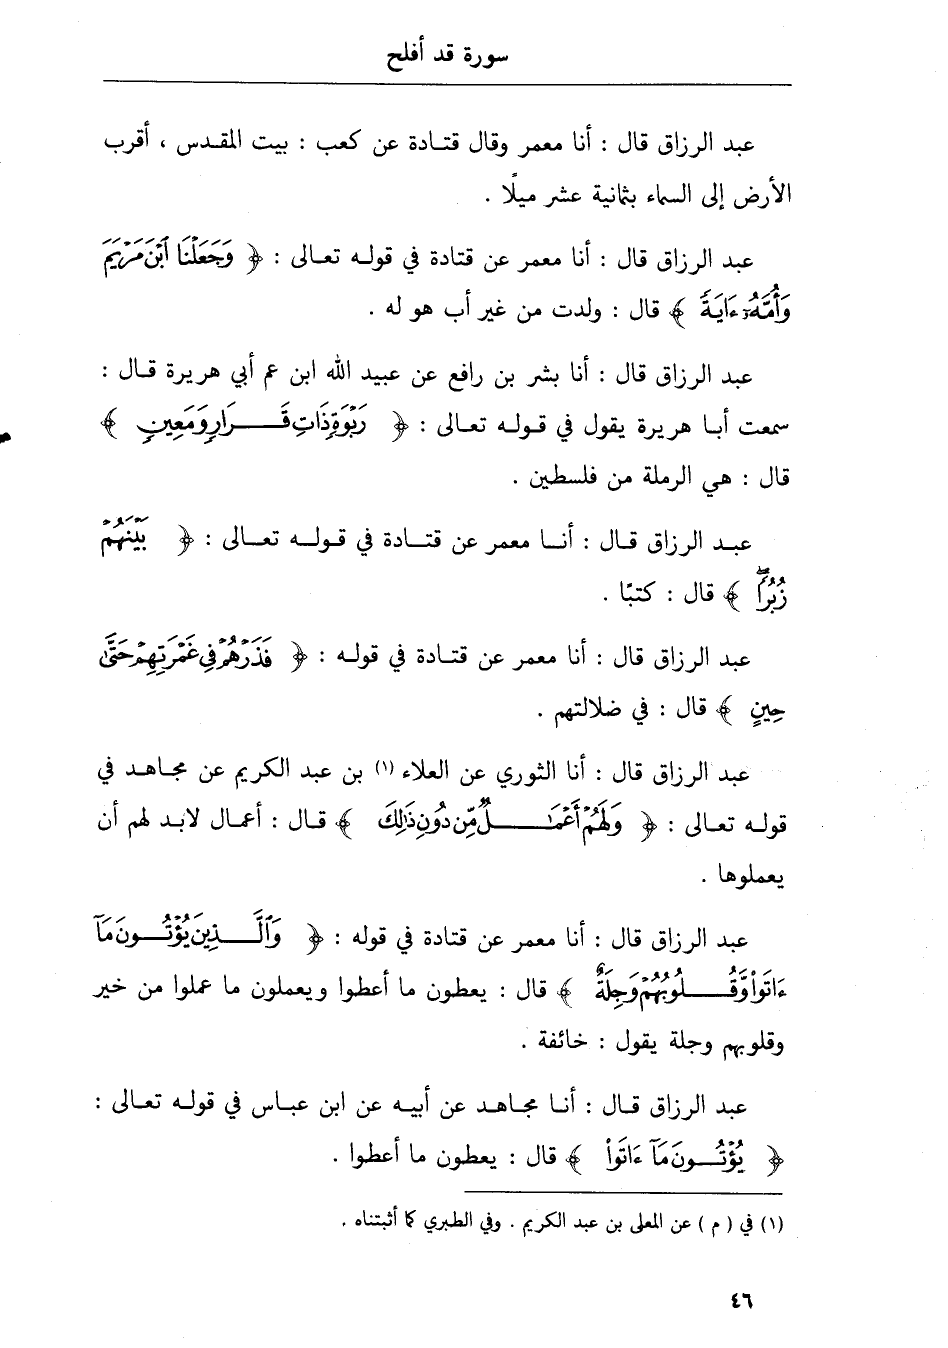 سورة قد أفلح
عبد الرزاق قال : أنا معمر وقال قتـادة عن كعب : بيت المقـدس ، أقرب
الأرض إلى السماء بثمانية عشر ميلًا .
عبد الرزاق قال : أنا معمر عن قتادة في قولـه تعـالى : ﴿ وَجَعَلْنَا ٱبْنَ مَرْيَمَ
وَأُمَّهُۥٓ ءَايَةً ﴾ قال : ولدت من غير أب هو له .
عبـد الرزاق قال : أنا بشر بن رافع عن عبيد الله ابن عم أبي هريرة قـال :
سمعت أبـا هريرة يقول في قـولـه تعـالى : ﴿ رَبْوَةٍ ذَاتِ قَـــرَارٍ وَمَعِينٍ ﴾
قال : هي الرملة من فلسطين .
عبـد الرزاق قـال : أنـا معمر عن قتـادة في قـولـه تعـالى : ﴿ بَيْنَهُمْ
زُبُرًاۖ ﴾ قال : كتبًا .
عبـد الرزاق قال : أنا معمر عن قتـادة في قولـه : ﴿ فَذَرْهُمْ فِي غَمْرَتِهِمْ حَتَّىٰ
حِينٍ ﴾ قال : في ضلالتهم .
عبـد الرزاق قال : أنا الثوري عن العلاء (١) بن عبد الكريم عن مجـاهـد في
قولـه تعـالى : ﴿ وَلَهُمْ أَعْمَـٰـــلٌ مِّن دُونِ ذَٰلِكَ ﴾ قـال : أعمـال لابـد لهم أن
يعملوها .
عبـد الرزاق قال : أنا معمر عن قتادة في قوله : ﴿ وَٱلَّـــذِينَ يُؤْتُـــونَ مَآ
ءَاتَوا۟ وَّقُـــلُوبُهُمْ وَجِلَةٌ ﴾ قال : يعطون ما أعطوا ويعملون ما عملوا من خير
وقلوبهم وجلة يقول : خائفة .
عبـد الرزاق قـال : أنـا مجـاهـد عن أبيـه عن ابن عبـاس في قولـه تعـالى :
﴿ يُؤْتُـــونَ مَآ ءَاتَوا۟ ﴾ قال : يعطون ما أعطوا .
(١) في ( م ) عن المعلى بن عبد الكريم . وفي الطبري كما أثبتناه .
٤٦